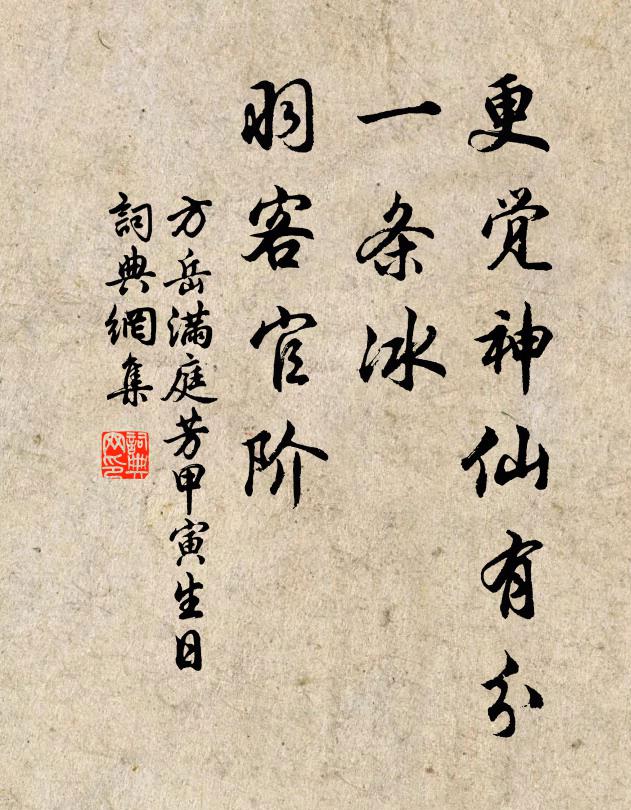 更觉神仙有分
一条冰
羽客官阶
方岳满庭芳甲寅生日
詞典網集
詞典网印